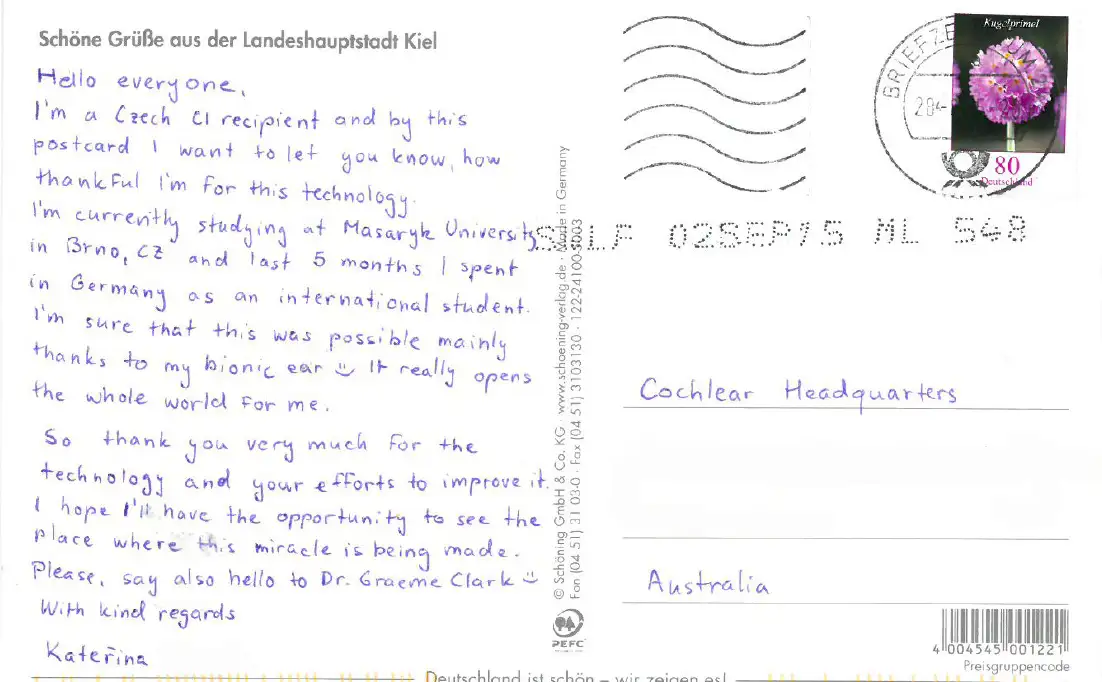 Schöne Grüße aus der Landeshauptstadt Kiel
Hello everyone,
I'm a Czech CI recipient and by this
postcard I want to let you know, how
thankful I'm for this technology.
I'm currently studying at Masaryk University
in Brno, CZ and last 5 months I spent
in Germany as an international student.
I'm sure that this was possible mainly
thanks to my bionic ear It really opens
the whole world for me.
So thank you very much for the
technology and your efforts to improve it.
I hope I'll have the opportunity to see the
place where this miracle is being made.
Please, say also hello to Dr. Graeme Clark
With kind regards
Kateřina
© Schöning GmbH & Co. KG · www.schoening-verlag.de · Made in Germany
Fon (04 51) 3 1 03-0 · Fax (04 51) 3103130 · 122-24100-3003
PEFC
Kugelprimel
80
Deutschland
BRIEFZE UM
28
02SEP15 ML 548
Cochlear Headquarters
Australia
4 004545 001221
Preisgruppencode
Deutschland ist schön – wir zeigen es!